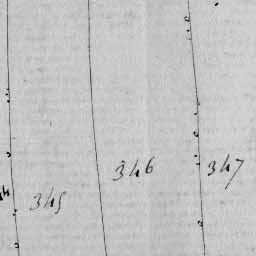 346 347
345